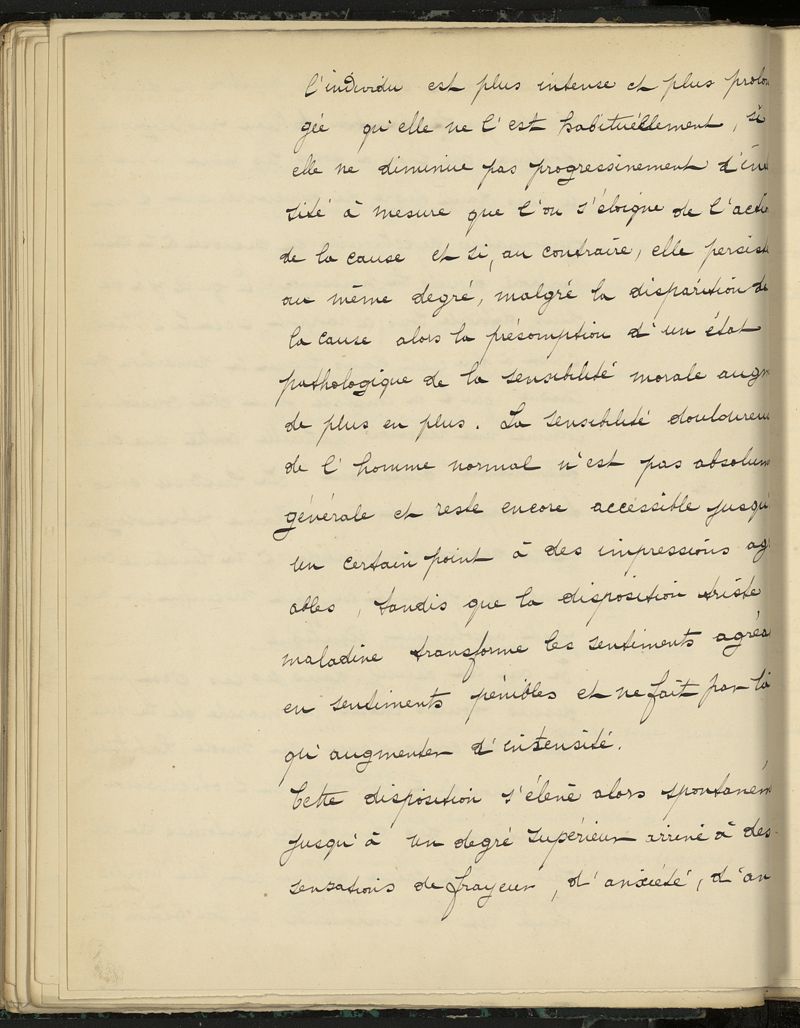 l'individu est plus intense et plus prolon
gée qu'elle ne l'est habituéllement, si
elle ne diminue pas progressivement d'in
sité à mesure que l'on s'éloigne de l'actio
de la cause et si, au contraire, elle persist
au même degré, malgré la disparition de
la cause alors la présomption d'un état
pathologique de la sensibilité morale augm
de plus en plus. La sensibilité douloureu
de l'homme normal n'est pas absolum
générale et reste encore accéssible jusqu'
un certain point à des impressions agr
ables, tandis que la disposition triste
maladive transforme les sentiments agréa
en sentiments pénibles et ne fait par là
qu'augmenter d'intensité.
Cette disposition s'élève alors spontaném
jusqu'à un degré supérieur arrivé à des
sensations de frayeur, d'anxiété, d'an